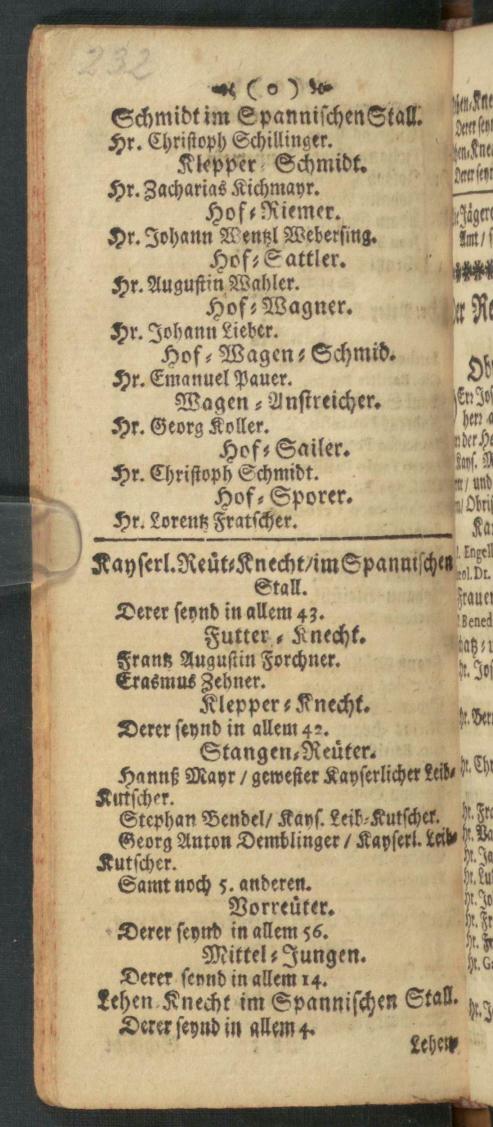 232
( 0 )
Schmidt im Spannischen Stall.
Hr. Christoph Schillinger.
Klepper Schmidt.
Hr. Zacharias Kichmayr.
Hof-Riemer.
Hr. Johann Wentzl Webersing.
Hof-Sattler.
Hr. Augustin Wahler.
Hof-Wagner.
Hr. Johann Lieber.
Hof-Wagen-Schmid.
Hr. Emanuel Pauer.
Wagen-Anstreicher.
Hr. Georg Koller.
Hof-Sailer.
Hr. Christoph Schmidt.
Hof-Sporer.
Hr. Lorentz Fratscher.
Kayserl. Reüt-Knecht/im Spannischen
Stall.
Derer seynd in allem 43.
Futter-Knecht.
Frantz Augustin Forchner.
Erasmus Zehner.
Klepper-Knecht.
Derer seynd in allem 42.
Stangen-Reüter.
Hannß Mayr / gewester Kayserlicher Leib-
Kutscher.
Stephan Bendel/ Kays. Leib-Kutscher.
Georg Anton Demblinger / Kayserl. Leib-
Kutscher.
Samt noch 5. anderen.
Vorreüter.
Derer seynd in allem 56.
Mittel-Jungen.
Derer seynd in allem 14.
Lehen Knecht im Spannischen Stall.
Derer seynd in allem 4.
Lehen-